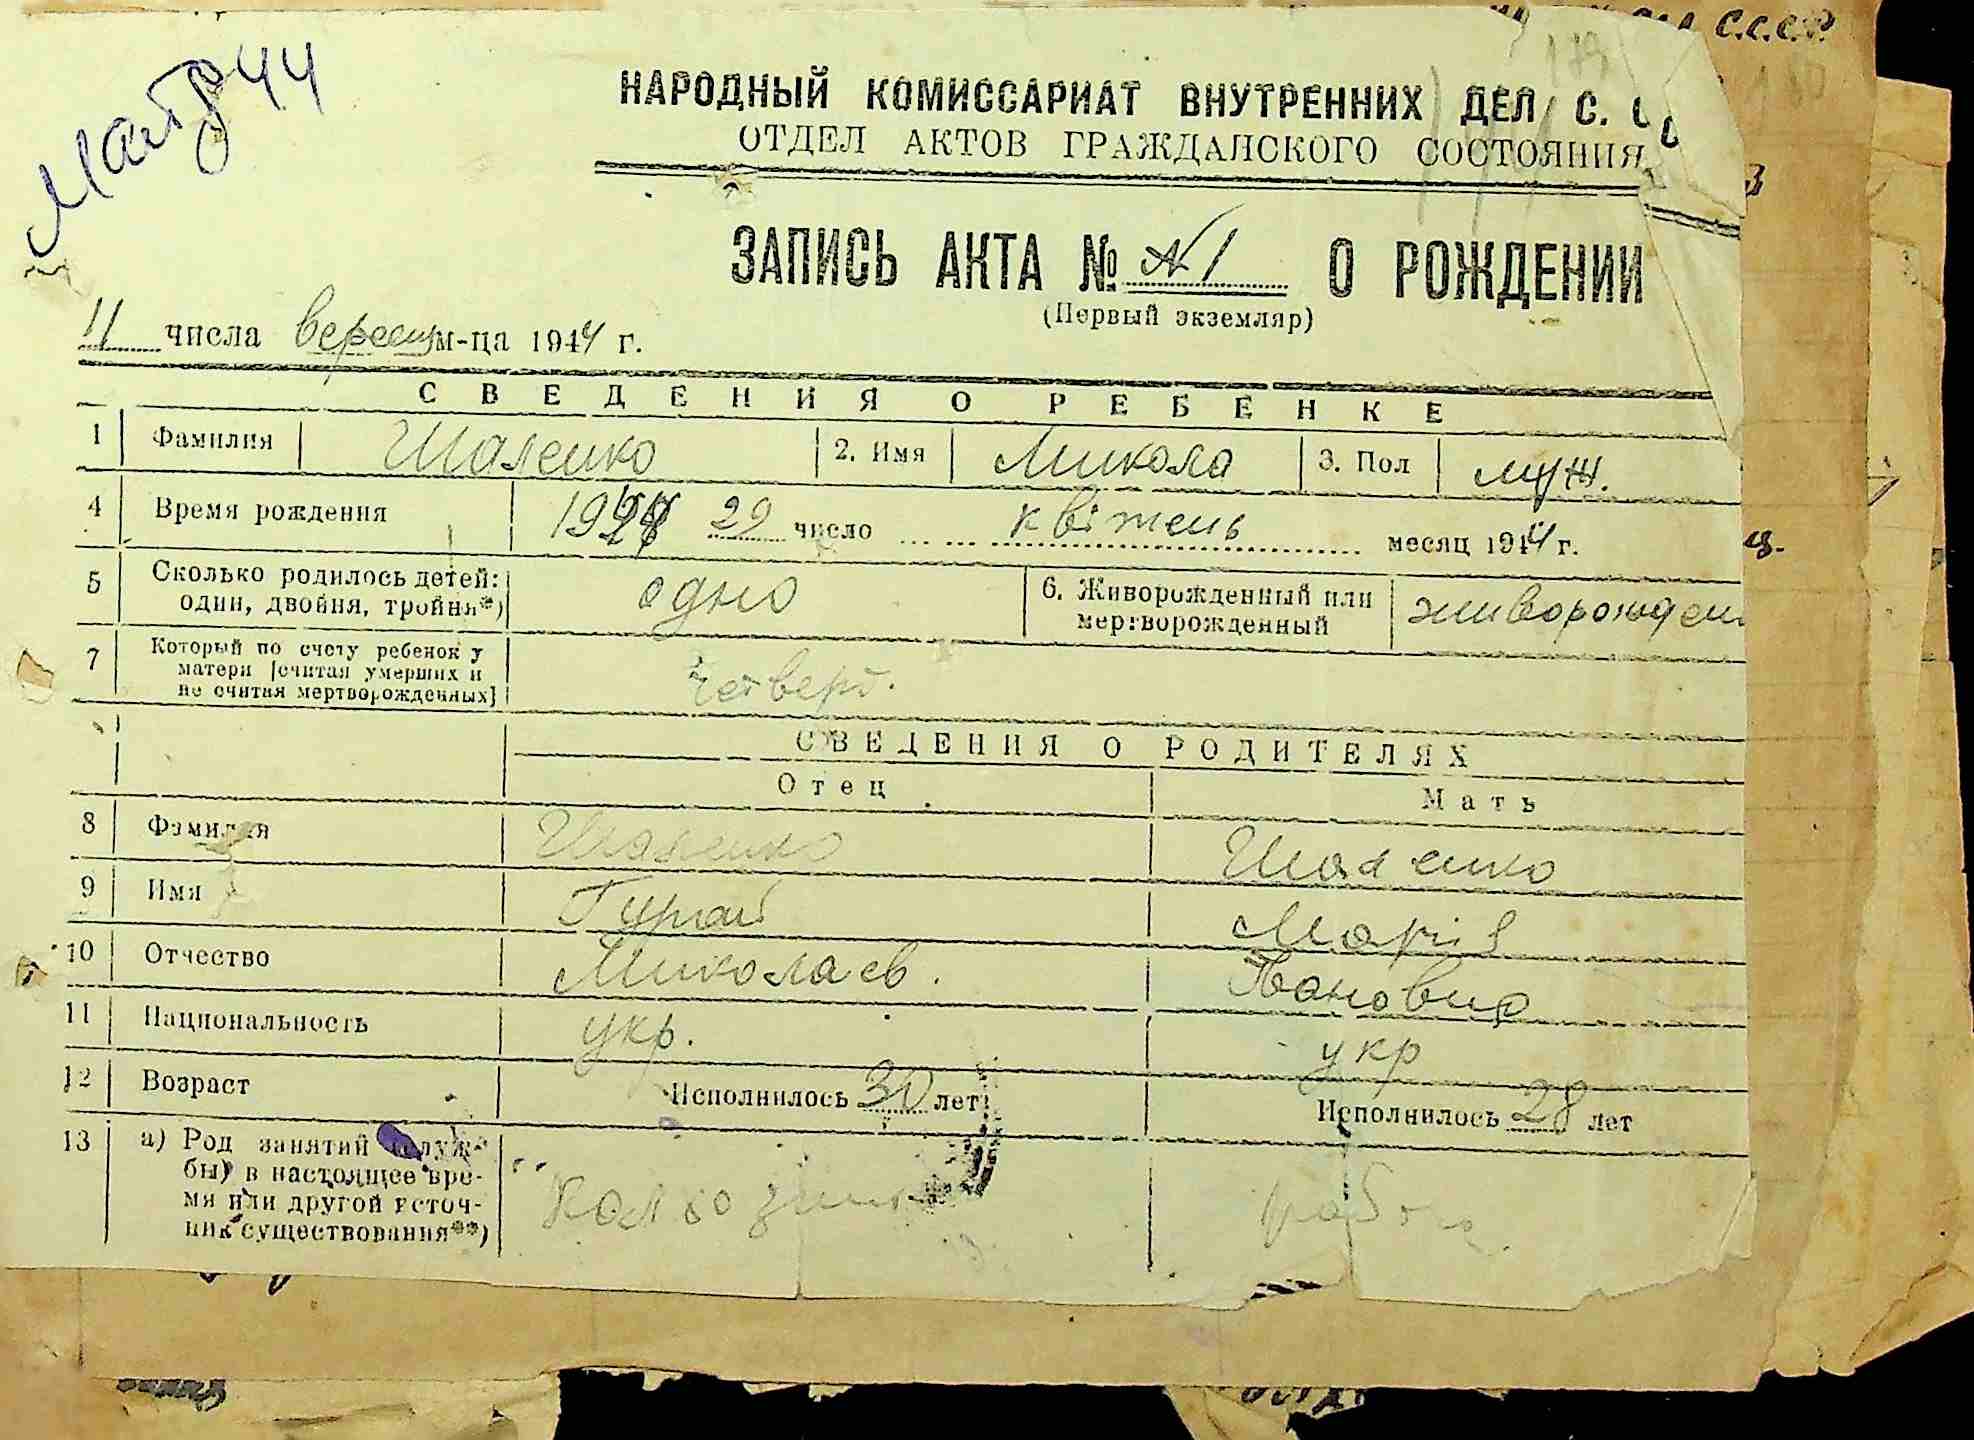 НАРОДНЫЙ КОМИССАРИАТ ВНУТРЕННИХ ДЕЛ С.
ОТДЕЛ АКТОВ ГРАЖДАНСКОГО СОСТОЯНИЯ
ЗАПИСЬ АКТА № N 1 О РОЖДЕНИИ
(Первый экземляр)
11 числа м-ца 1944 г.
СВЕДЕНИЯ О РЕБЕНКЕ
1 Фамилия Шаленко 2. Имя Микола 3. Пол муж.
4 Время рождения 29 число квітень месяц 1944 г.
5 Сколько родилось детей: одно 6. Живорожденный или живорожден
один, двойня, тройня*) мертворожденный
7 Который по счету ребенок у четверт.
матери [считая умерших и
не считая мертворожденных]
СВЕДЕНИЯ О РОДИТЕЛЯХ
Отец Мать
8 Фамилия Шаленко Шаленко
9 Имя Марія
10 Отчество Миколаев.
11 Национальность укр. укр
12 Возраст Исполнилось 30 лет Исполнилось 28 лет
13 а) Род занятий служ-
бы) в настоящее вре-
мя или другой источ-
ник существования**)
С.С.С.Р.